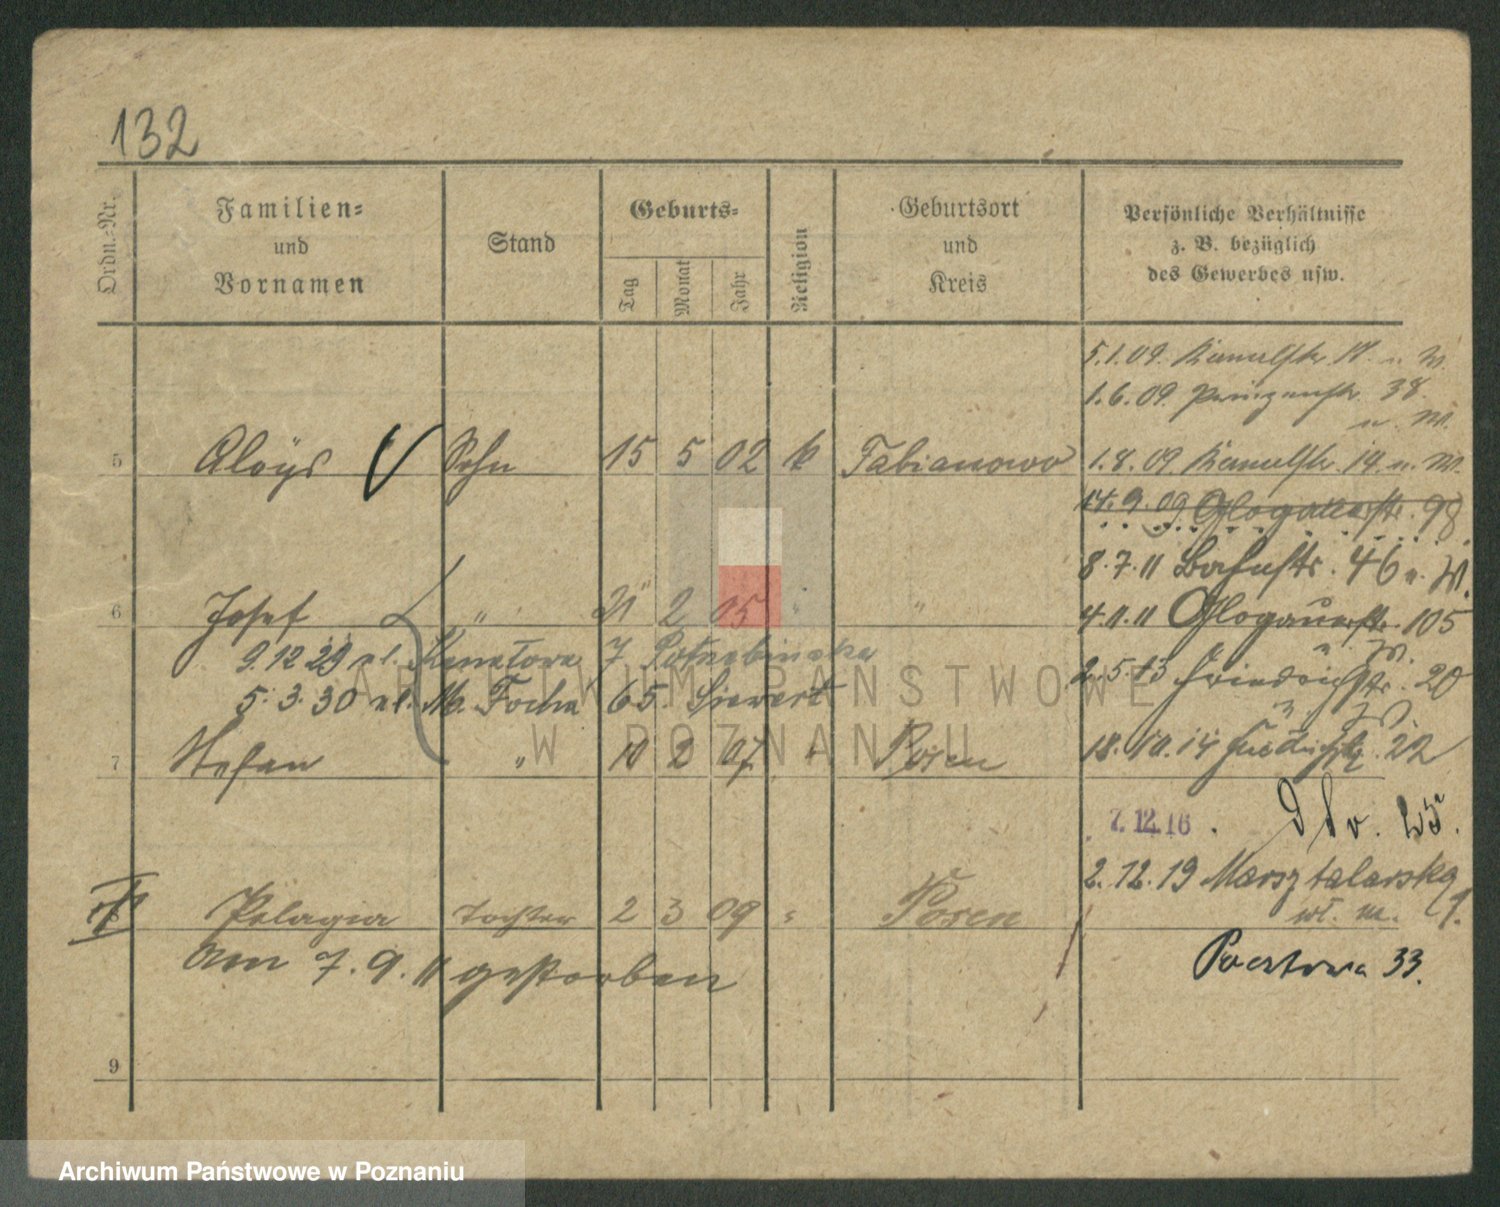 132
Ordn.-Nr.
Familien-
und
Vornamen
Stand
Geburts-
Tag
Monat
Jahr
Religion
Geburtsort
und
Kreis
Persönliche Verhältnisse
z. B. bezüglich
des Gewerbes usw.
5.1.09. 19. u. W.
1.6.09. Prinzenstr. 38.
u. W.
5 Aloÿs Sohn 15 5 02 k Fabianowo
1.8.09 19. u. W.
14.9.09 Glogauerstr. 98
8.7.11 46 u. W.
6 Josef " 21 2 05 " "
4.11.11 Glogauerstr. 105
u. W.
9.12.29 ul. 7
2.5.13 Friedrichstr. 20
5.3.30 ul. M. Focha 65
7 Stefan " 10 2 07 " Posen
18.10.14 Friedrichstr. 22
7.12.16.
2.12.19 Marsztalarska
8 Pelagia Tochter 2 3 09 " Posen
am 7.9.11 gestorben
Pocztowa 33.
9
ARCHIWUM PAŃSTWOWE
W POZNANIU
Archiwum Państwowe w Poznaniu